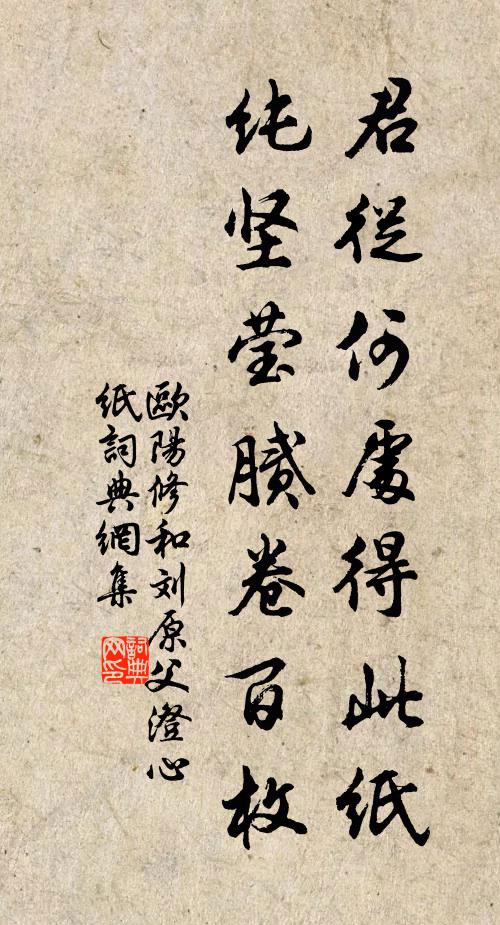 君從何處得此紙
纯坚莹膩卷百枚
歐陽修和刘原父澄心
紙詞典網集
詞典網印